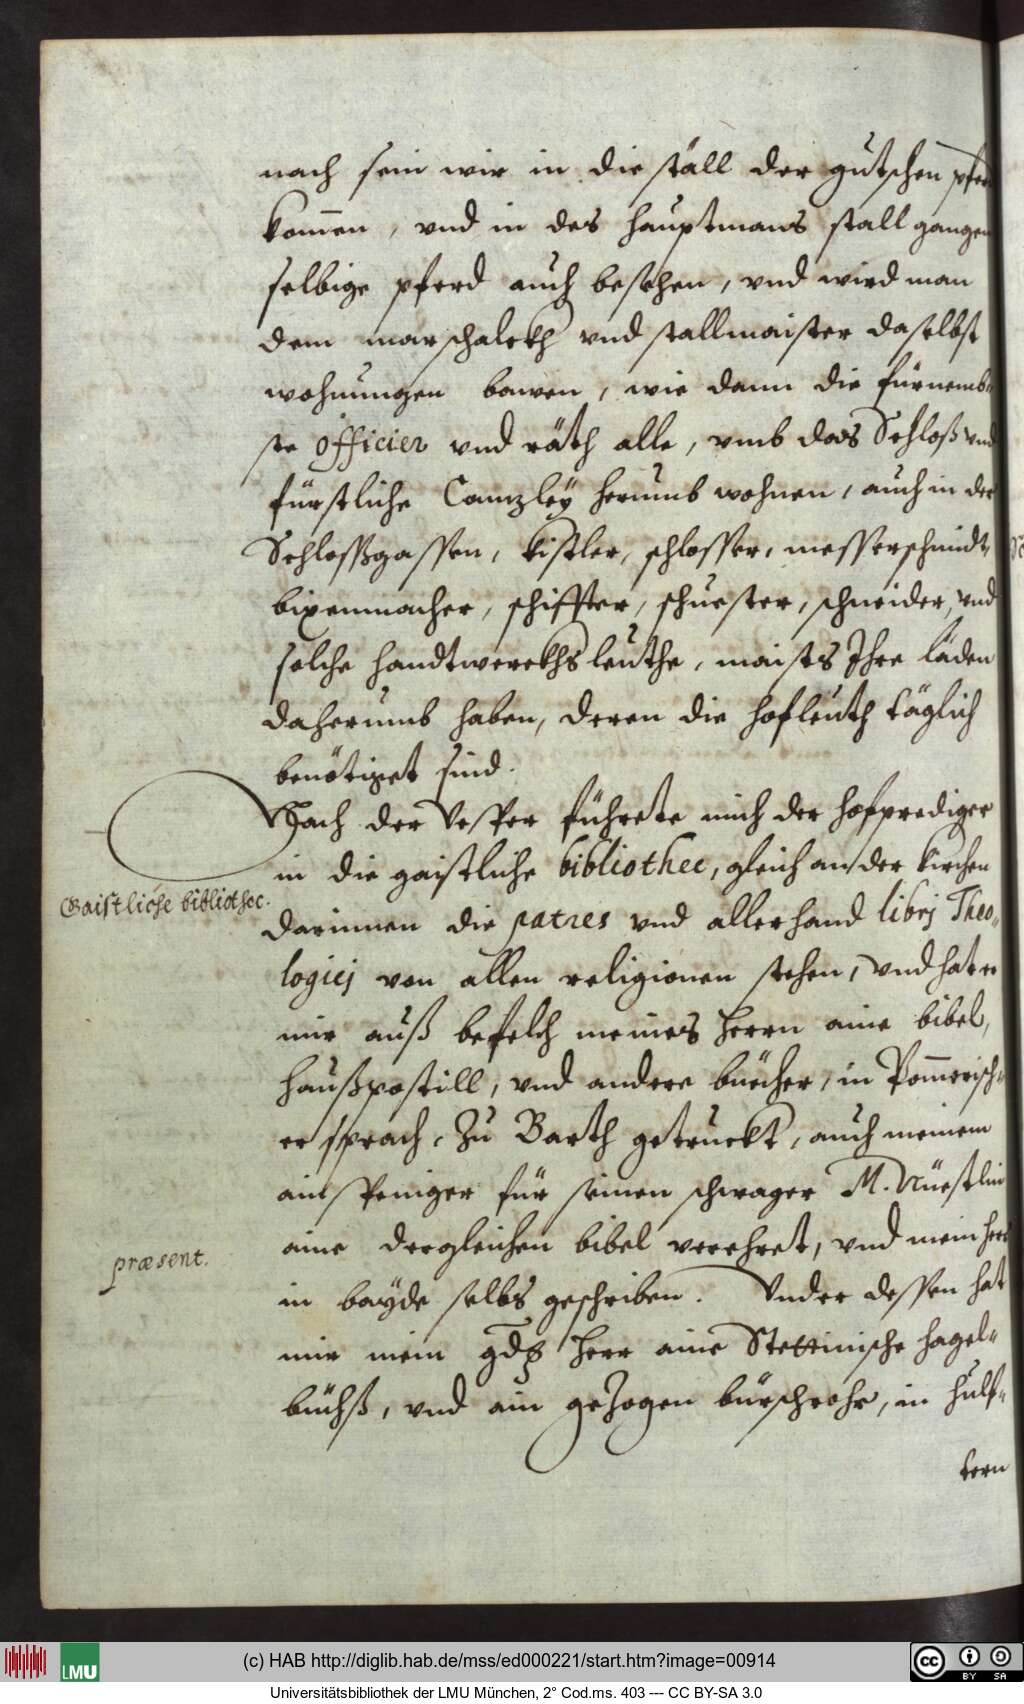 nach sein wir in die ställ der gutschen pfer
kom̄en, vnd in des hauptmans stall gangen
selbige pferd auch besehen, vnd wird man
dem marschalckh vnd stallmaister daselbst
wohnungen bawen, wie dann die fürnemb-
ste officier vnd räth alle, vmb das Schloß vnd
fürstliche Cantzley herumb wohnen, auch in der
Schloßgassen, kistler, schlosser, messerschmidt,
bixenmacher, schiffter, schuester, schneider, vnd
solche handtwerckhsleuthe, maists Ihre läden
daherumb haben, deren die hofleuth täglich
benötiget sind.
Nach der Vesper führete mich der hofprediger
in die gaistliche bibliothec, gleich an der kirchen
Gaistliche bibliothec.
darinnen die patres vnd allerhand libri Theo-
logici von allen religionen stehen, vnd hat er
mir auß befelch meines herrn aine bibel,
haußpostill, vnd andere buecher, in Pom̄erisch-
er sprach, zu Barth getruckt, auch meinem
ainspeniger für seinen schwager M. Nüestlin
aine dergleichen bibel verehret, vnd mein herr
præsent.
in bayde selbs geschriben. Vnder dessen hat
mir mein gdg herr aine Stettinische hagel-
büchß, vnd ain gezogen bürschrohr, in hulf-
tern
(c) HAB http://diglib.hab.de/mss/ed000221/start.htm?image=00914
LMU
cc BY SA
Universitätsbibliothek der LMU München, 2° Cod.ms. 403 --- CC BY-SA 3.0